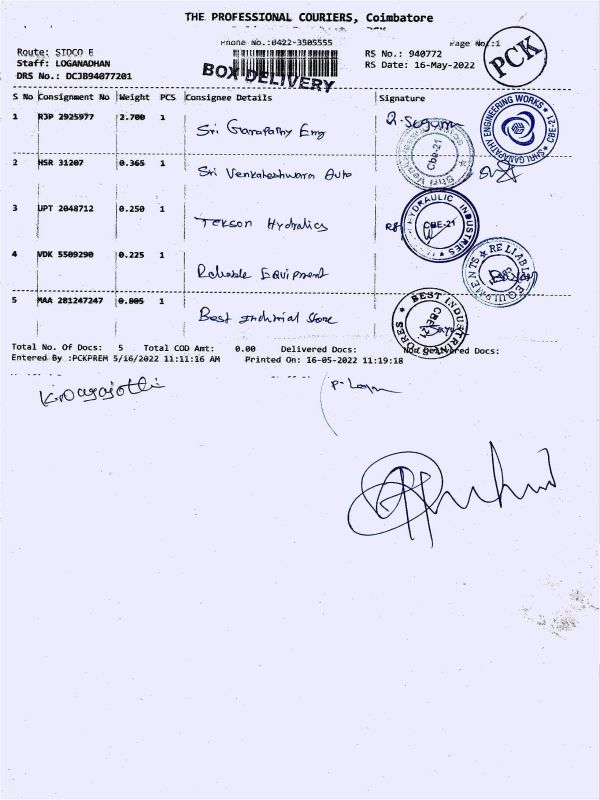 THE PROFESSIONAL COURIERS, Coimbatore
Phone No.:0422-3505555 Page No.:1
Route: SIDCO E RS No.: 940772
Staff: LOGANADHAN RS Date: 16-May-2022
DRS No.: DCJB94077201
BOX DELIVERY
PCK
S No Consignment No Weight PCS Consignee Details Signature
1 RJP 2925977 2.700 1 Sri Ganapathy Eng
SHRI GANAPATHY ENGINEERING WORKS ★ CBE-21 ★
2 HSR 31207 0.365 1 Sri Venkateshwara Auto
Cbe-21
3 UPT 2048712 0.250 1 Tekson Hydralics
HYDRAULIC INDUSTRIES ★ CBE-21
4 VDK 5509290 0.225 1 Reliable Equipment
★ RELIABLE EQUIPMENTS
5 MAA 281247247 0.805 1 Best Industrial Store
★ BEST INDUSTRIAL STORES CBE-21
Total No. Of Docs: 5 Total COD Amt: 0.00 Delivered Docs: Not Delivered Docs:
Entered By :PCKPREM 5/16/2022 11:11:16 AM Printed On: 16-05-2022 11:19:18